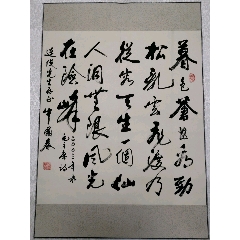 暮色蒼茫看勁
松亂雲飛渡仍
從容天生一個仙
人洞無限風光
在險峰
二〇〇三年
毛主席詩
先生